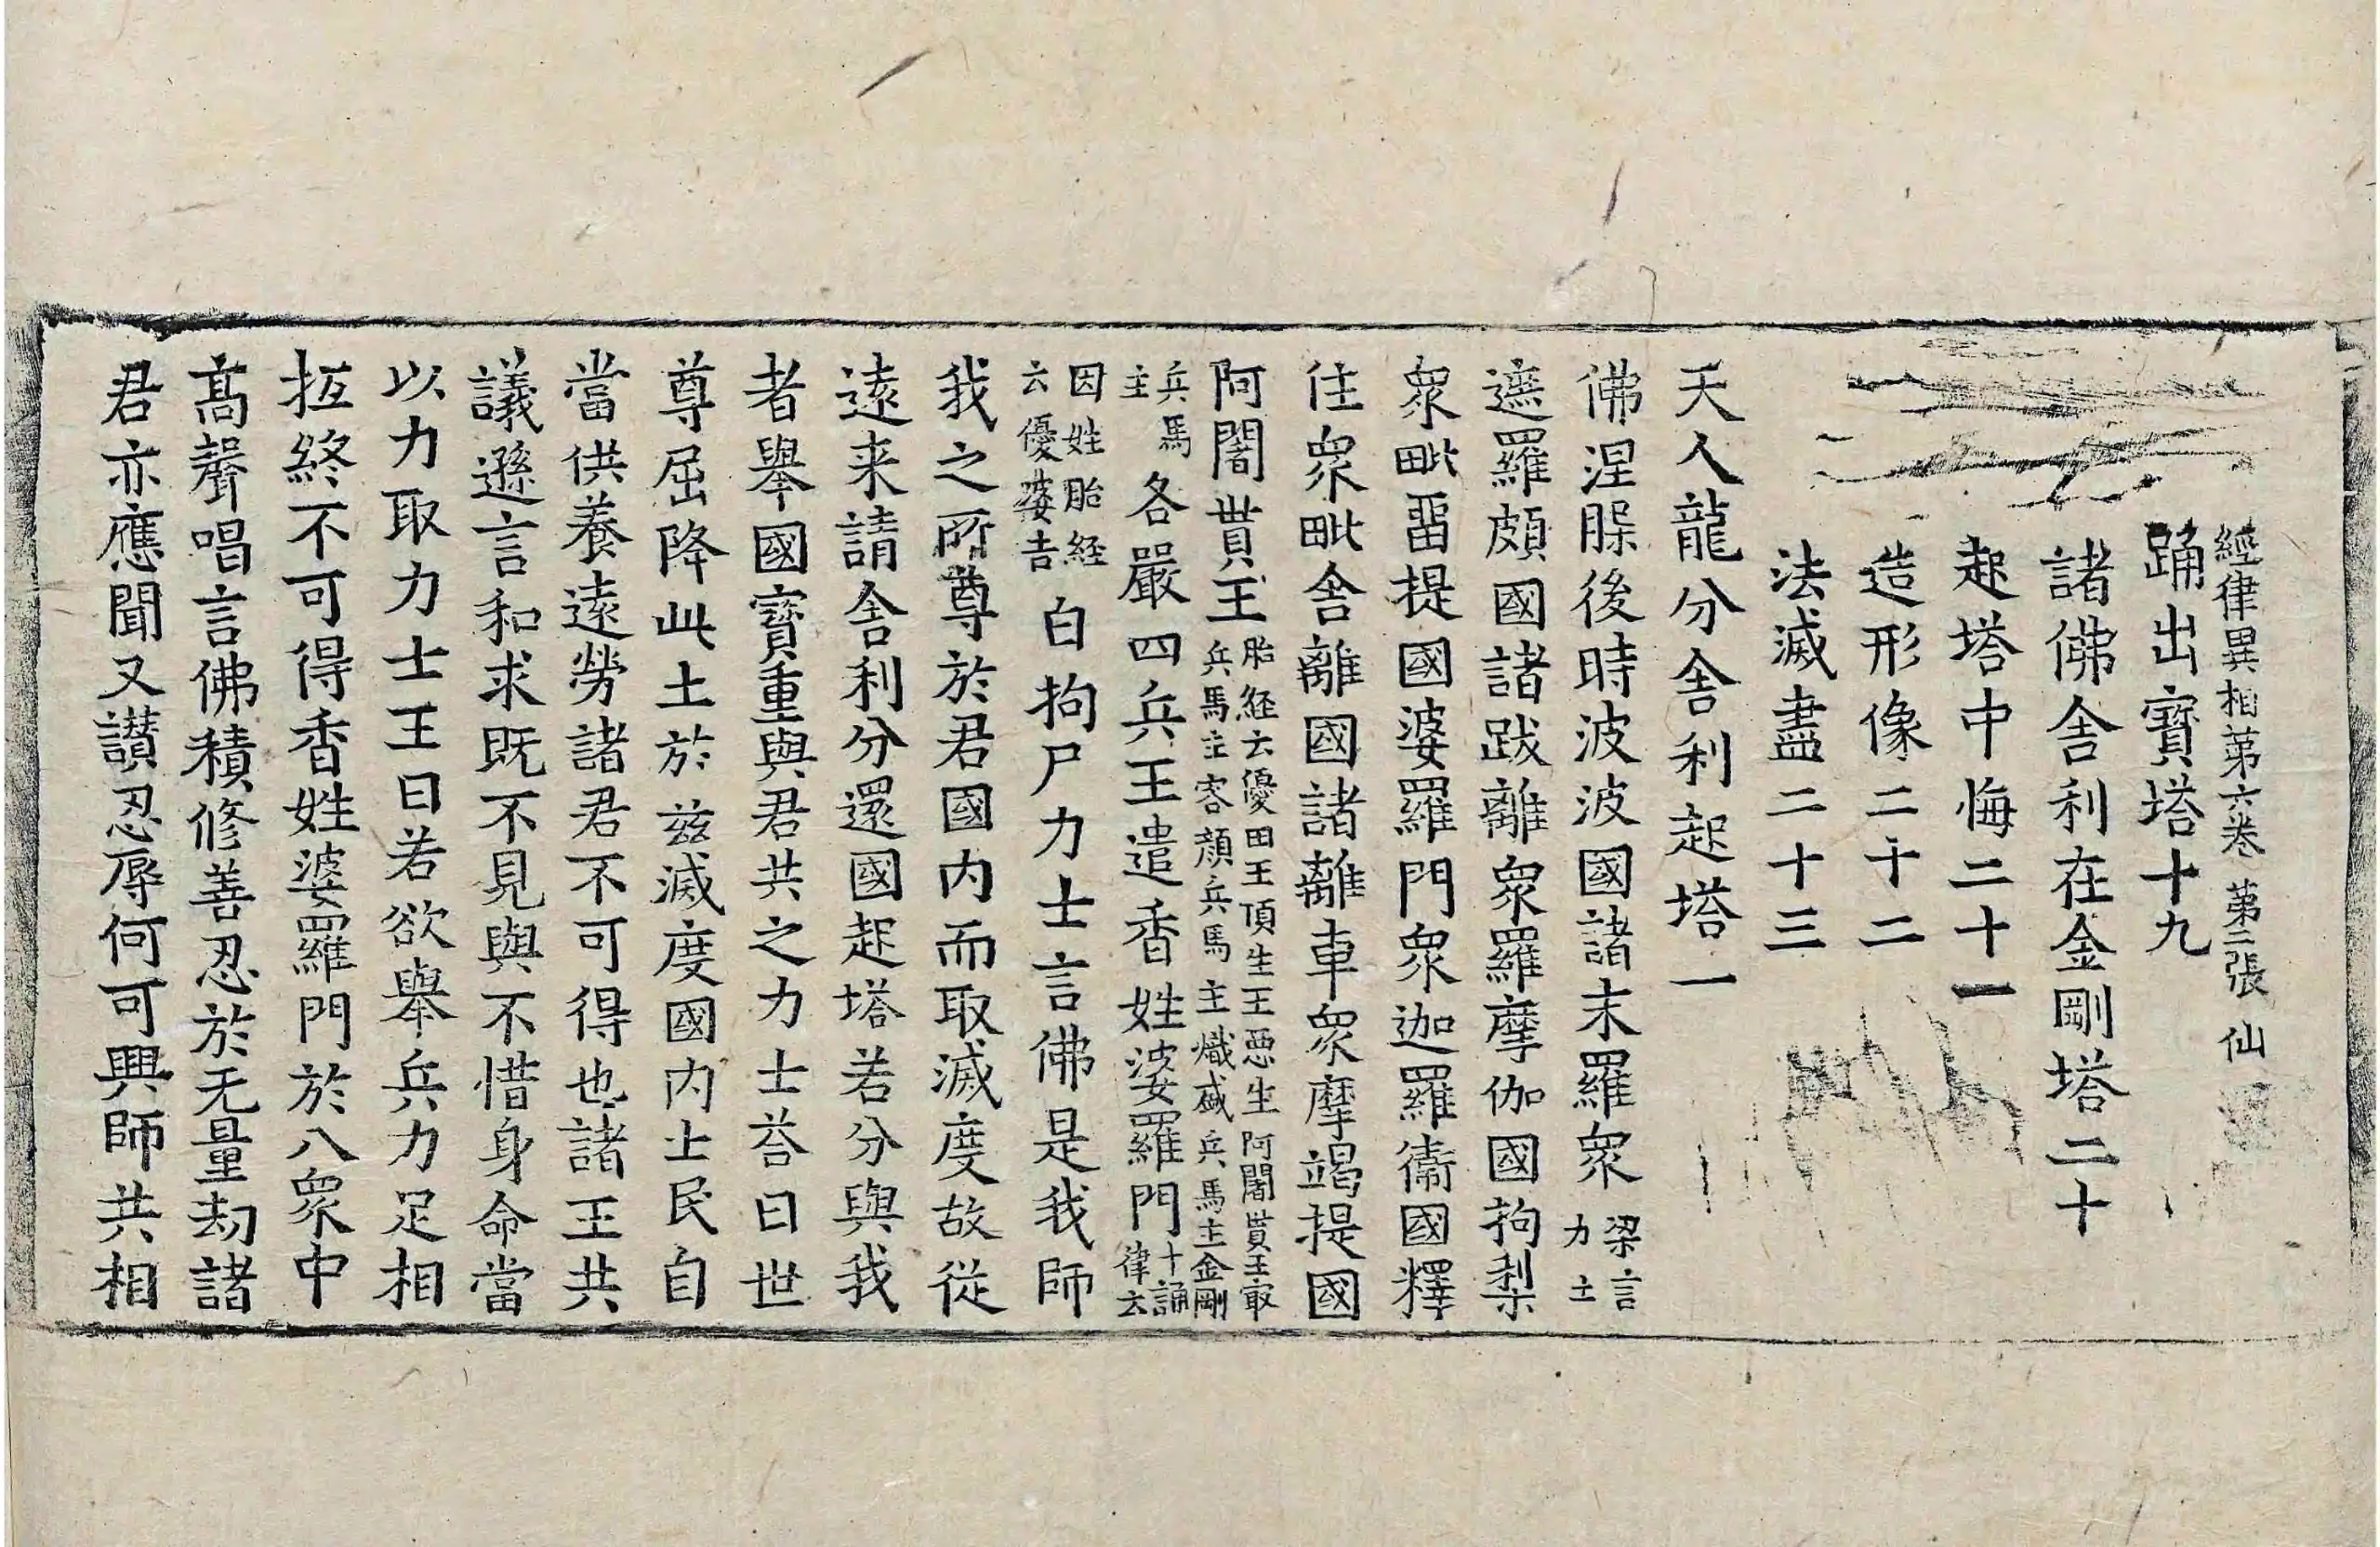 經律異相第六卷 第二張 仙
踊出寶塔十九
諸佛舍利在金剛塔二十
起塔中悔二十一
造形像二十二
法滅盡二十三
天人龍分舍利起塔一
佛涅腂後時波波國諸末羅衆梁言力士
遮羅頗國諸跋離衆羅摩伽國拘梨
衆毗畱提國婆羅門衆迦羅衞國釋
住衆毗舍離國諸離車衆摩竭提國
阿闍貰王胎經云優田王頂生王惡生阿闍貰王㝡兵馬主容顏兵馬主熾盛兵馬主金剛
兵馬主各嚴四兵王遣香姓婆羅門十誦律云
因姓胎経云優婆吉白拘尸力士言佛是我師
我之所尊於君國内而取滅度故從
遠来請舍利分還國起塔若分與我
者舉國寶重與君共之力士荅曰世
尊屈降此土於兹滅度國内士民自
當供養遠勞諸君不可得也諸王共
議遜言和求既不見與不惜身命當
以力取力士王曰若欲舉兵力足相
拒終不可得香姓婆羅門於八衆中
髙聲唱言佛積修善忍於无量劫諸
君亦應聞又讃忍辱何可興師共相